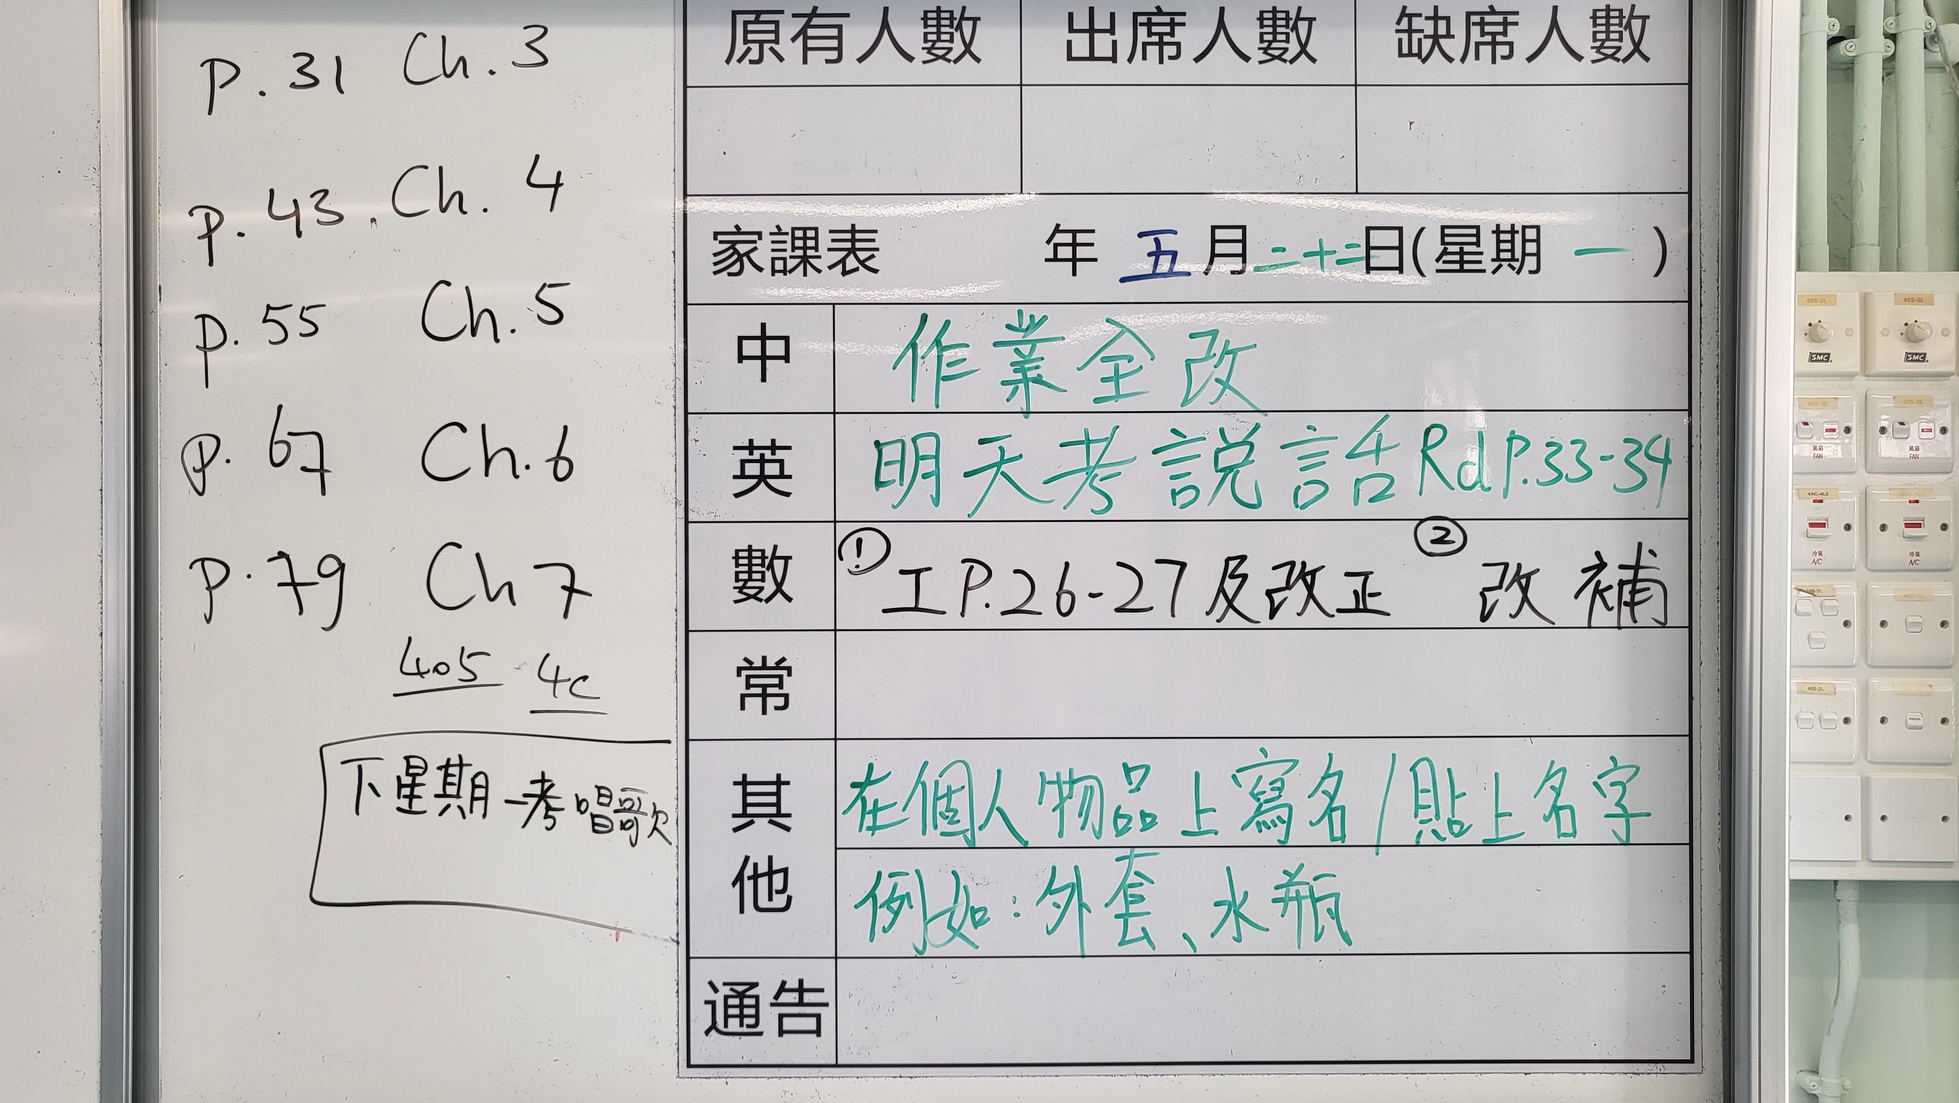 P. 31 Ch. 3
P. 43. Ch. 4
P. 55 Ch. 5
P. 67 Ch. 6
P. 79 Ch 7
405 4C
下星期一考唱歌
原有人數 出席人數 缺席人數
家課表 年 五月二十二日(星期 一 )
中 作業全改
英 明天考説話 Rd P.33-34
數 ① 工 P.26-27及改正 ② 改補
常
其他 在個人物品上寫名/貼上名字
例如:外套、水瓶
通告
405-3L 405-3L
SMC SMC
風扇 FAN 風扇 FAN
冷氣 A/C 冷氣 A/C